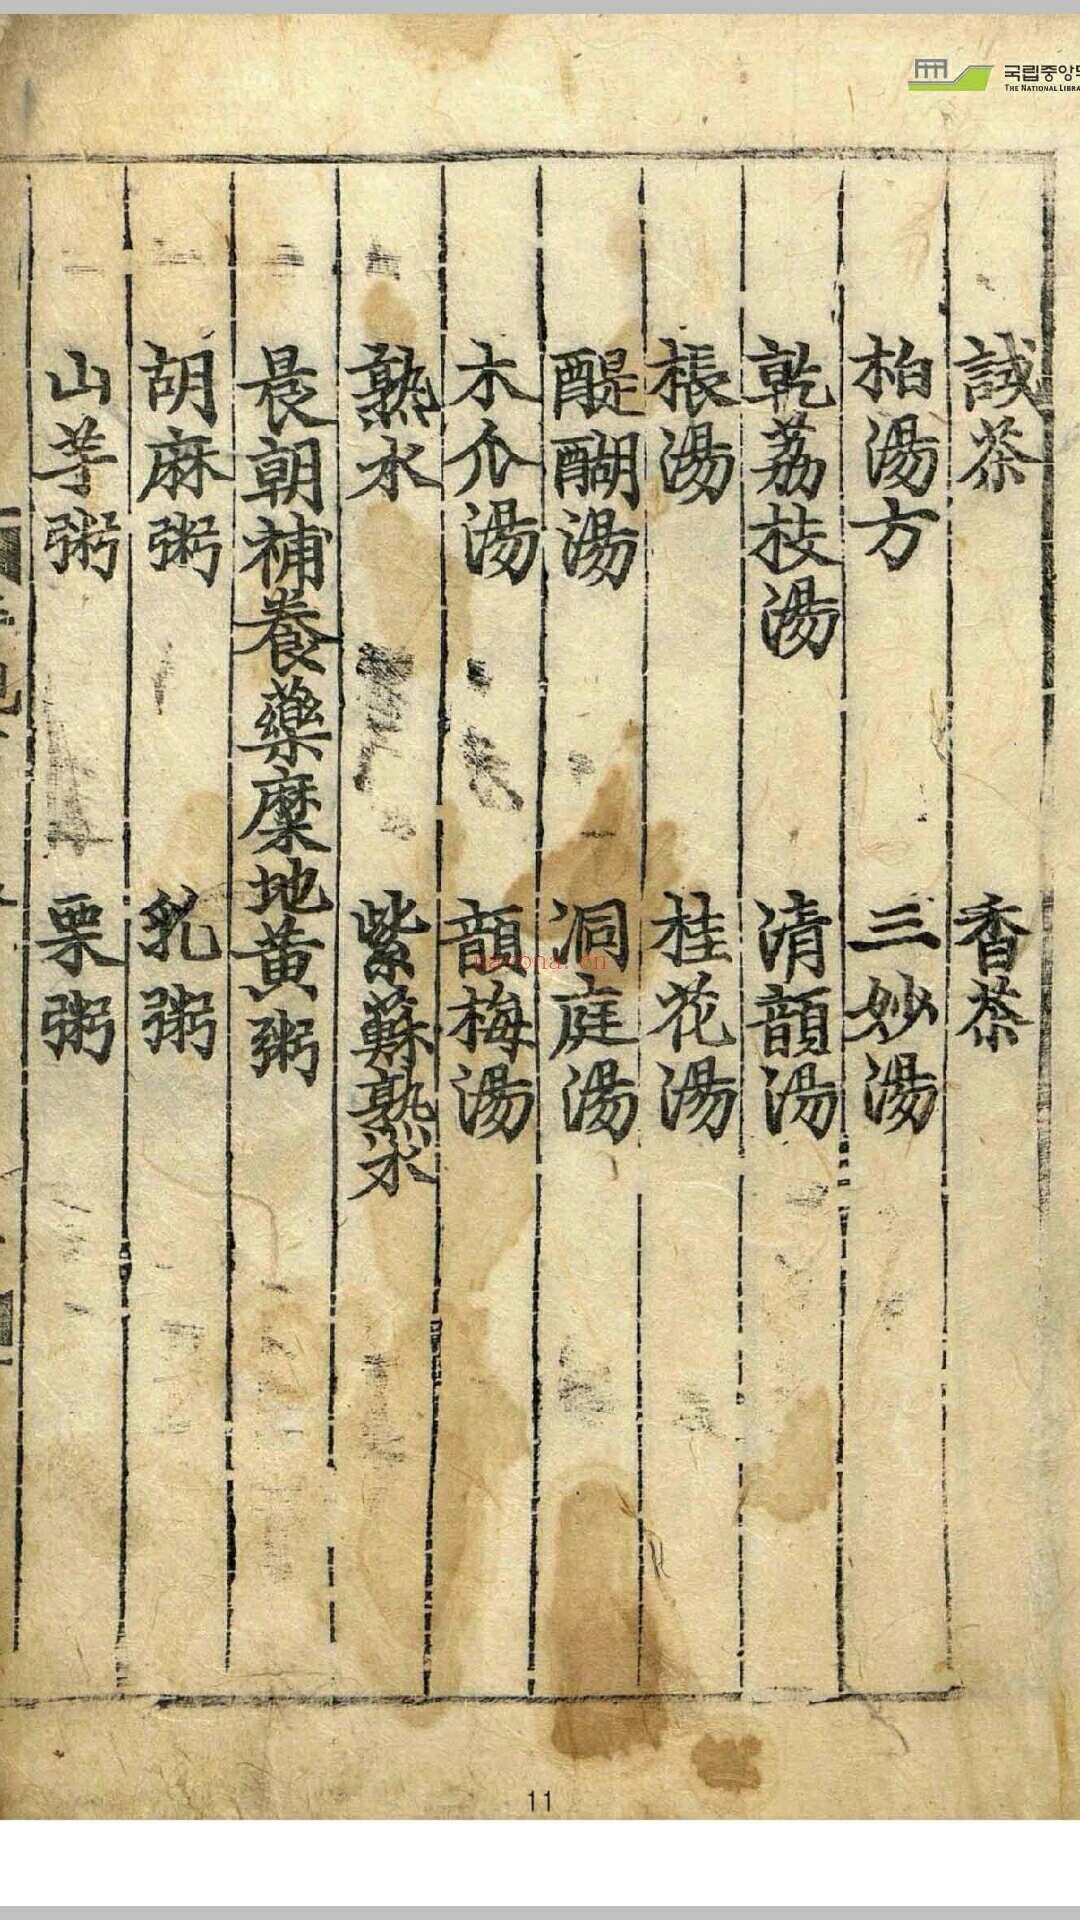 국립중앙도
THE NATIONAL LIBRA
試茶 香茶
柏湯方 三妙湯
乾荔枝湯 清韻湯
棖湯 桂花湯
醍醐湯 洞庭湯
木介湯 韻梅湯
熟水 紫蘇熟水
晨朝補養藥糜地黄粥
胡麻粥 乳粥
山芋粥 栗粥
11